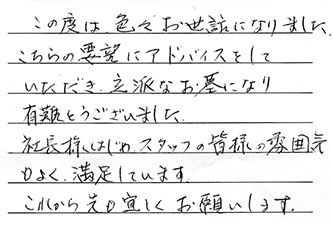 この度は、色々お世話になりました。
こちらの要望にアドバイスをして
いただき、立派なお墓になり
有難とうございました。
社長様はじめ、スタッフの皆様の雰囲気
もよく、満足しています。
これから先も宜しくお願いします。